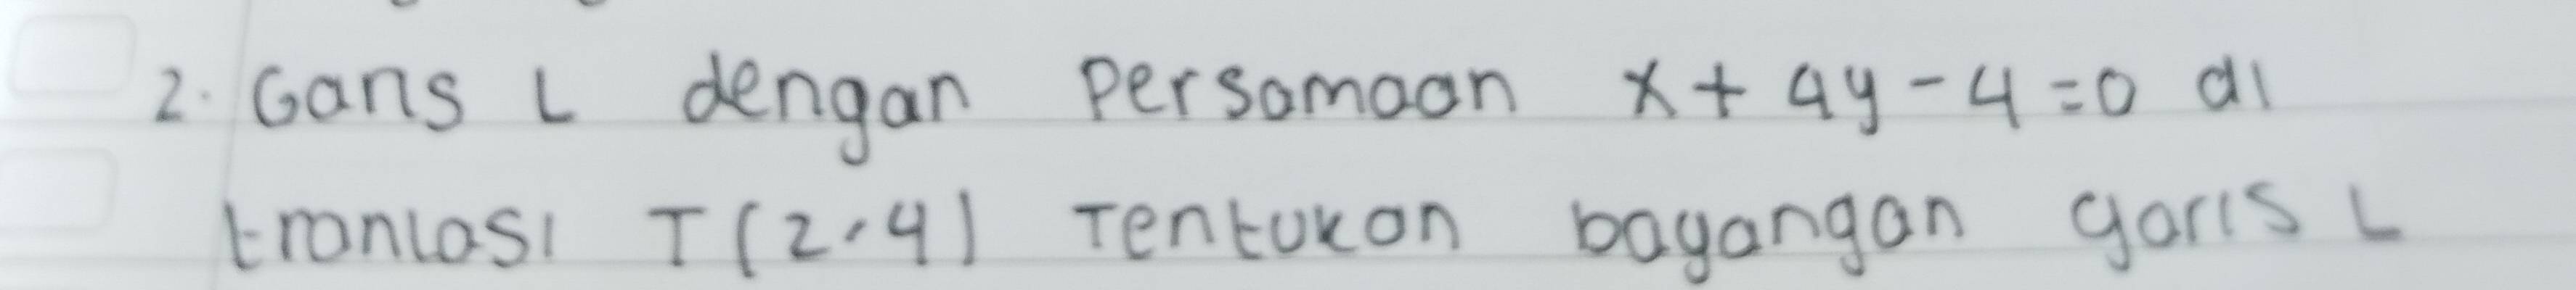 2. Garis L dengan Persamaan x + 4y - 4 = 0 di
tranlasi T(2,4) Tentukan bayangan garis L